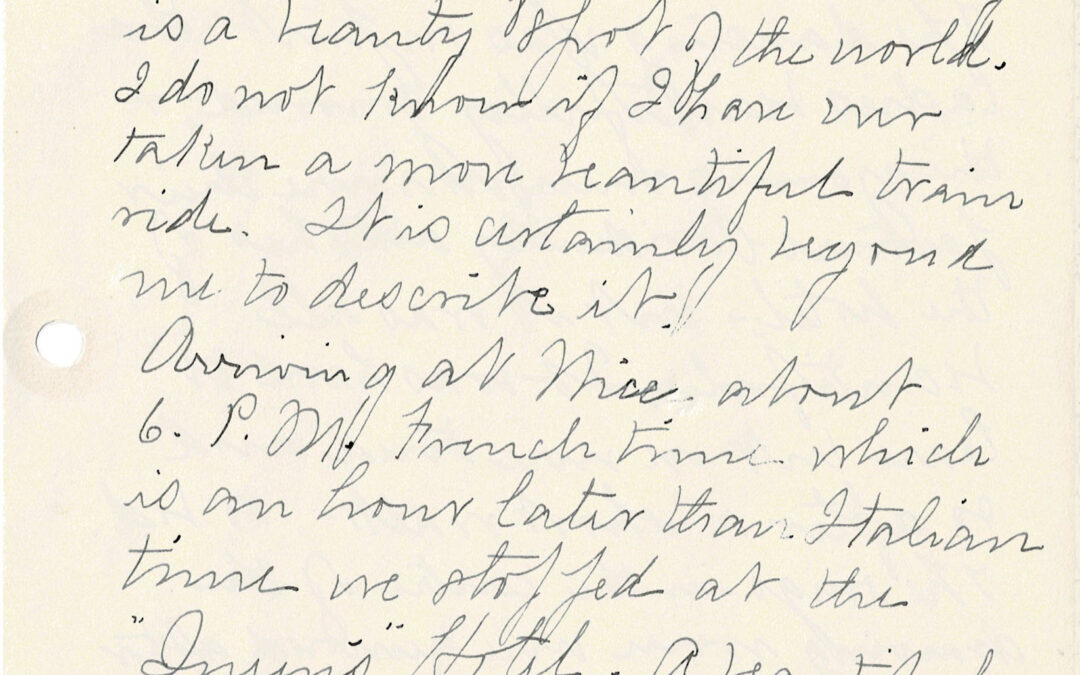 is a beauty spot of the world.
I do not know if I have ever
taken a more beautiful train
ride. It is certainly beyond
me to describe it.
Arriving at Nice about
6. P.M. French time which
is an hour later than Italian
time we stopped at the
Hotel. A beautiful